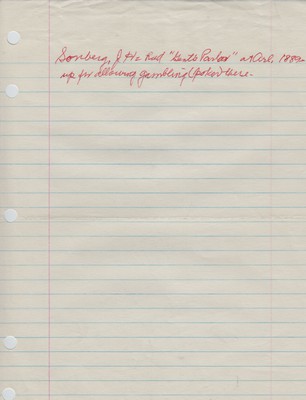 Sonberg, J. He had "Gent's Parlor" at Arl. 1889-
up for allowing gambling (poker) there.